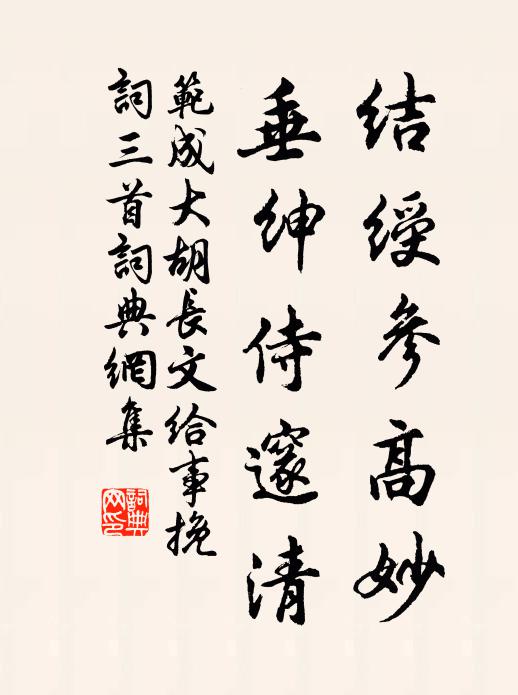 結綬參高妙
垂紳侍邃清
範成大胡長文給事挽
詞三首詞典網集
詞典
网印